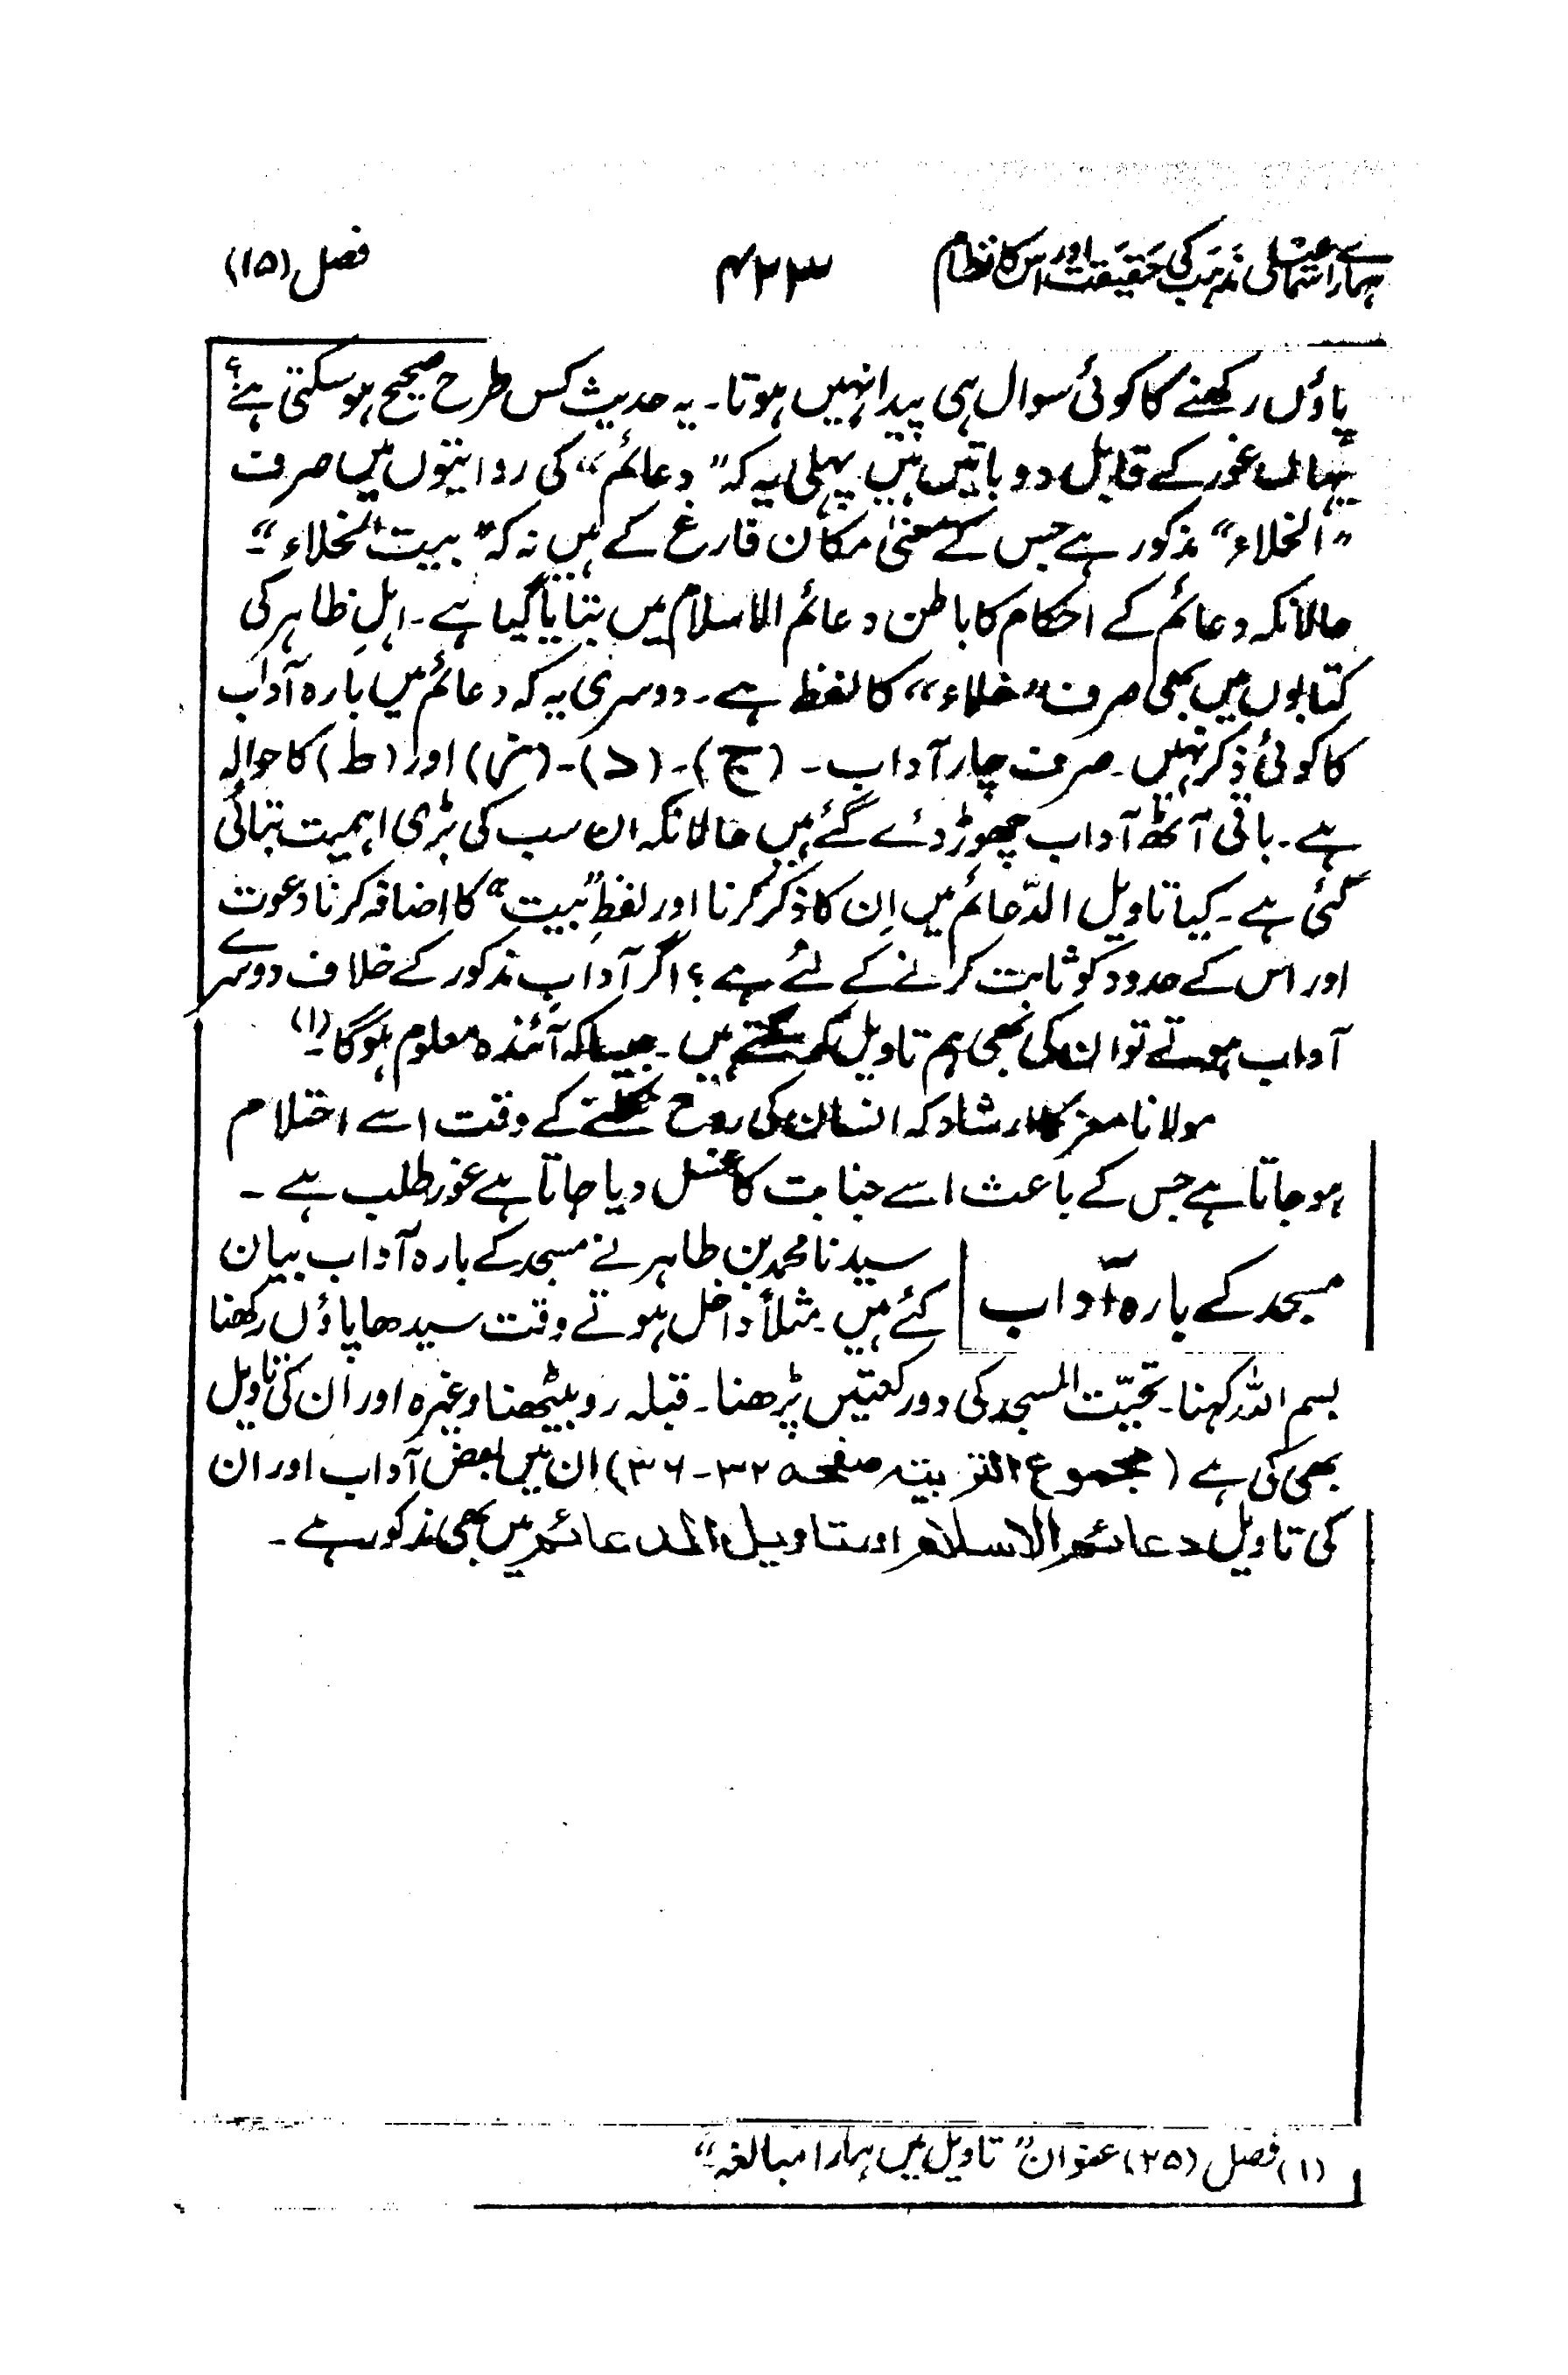 ہمارے اسماعیلی مذہب کی حقیقت اور اس کا نظام ۴۲۳ فصل (۱۵)
پاؤں رکھنے کا کوئی سوال ہی پیدا نہیں ہوتا۔ یہ حدیث کس طرح صحیح ہو سکتی ہے؟
یہاں غور کے قابل دو باتیں ہیں پہلی یہ کہ "دعائم" کی روایتوں میں صرف
"الخلاء" مذکور ہے جس کے معنیٰ مکان فارغ کے ہیں نہ کہ "بیت الخلاء"۔
حالانکہ دعائم کے احکام کا باطن دعائم الاسلام میں بتایا گیا ہے۔ اہلِ ظاہر کی
کتابوں میں بھی صرف "خلاء" کا لفظ ہے۔ دوسری یہ کہ دعائم میں بارہ آداب
کا کوئی ذکر نہیں۔ صرف چار آداب۔ (ج)۔ (د)۔ (ز) اور (ط) کا حوالہ
ہے۔ باقی آٹھ آداب چھوڑ دئے گئے ہیں حالانکہ ان سب کی بڑی اہمیت بتائی
گئی ہے۔ کیا تاویل الدّعائم میں اِن کا ذکر کرنا اور لفظِ "بیت" کا اضافہ کرنا دعوت
اور اس کے حدود کو ثابت کرنے کے لئے ہے؟ اگر آدابِ مذکور کے خلاف دوسرے
آداب ہوتے تو ان کی بھی ہم تاویل کر سکتے ہیں۔ جیسا کہ آئندہ معلوم ہوگا۔(۱)
مولانا معز کا ارشاد کہ انسان کی روح نکلنے کے وقت اسے احتلام
ہو جاتا ہے جس کے باعث اسے جنابت کا غسل دیا جاتا ہے غور طلب ہے۔
مسجد کے بارہ آداب
سیدنا محمد بن طاہر نے مسجد کے بارہ آداب بیان
کئے ہیں۔ مثلاً داخل ہوتے وقت سیدھا پاؤں رکھنا
بسم اللہ کہنا۔ تحیّت المسجد کی دو رکعتیں پڑھنا۔ قبلہ رو بیٹھنا وغیرہ اور ان کی تاویل
بھی کی ہے (مجموع التربیتہ صفحہ ۳۲-۳۶) اِن میں بعض آداب اور ان
کی تاویل دعائم الاسلام اور تاویل الدعائم میں بھی مذکور ہے۔
(۱) فصل (۲۵) عنوان "تاویل میں ہمارا مبالغہ"